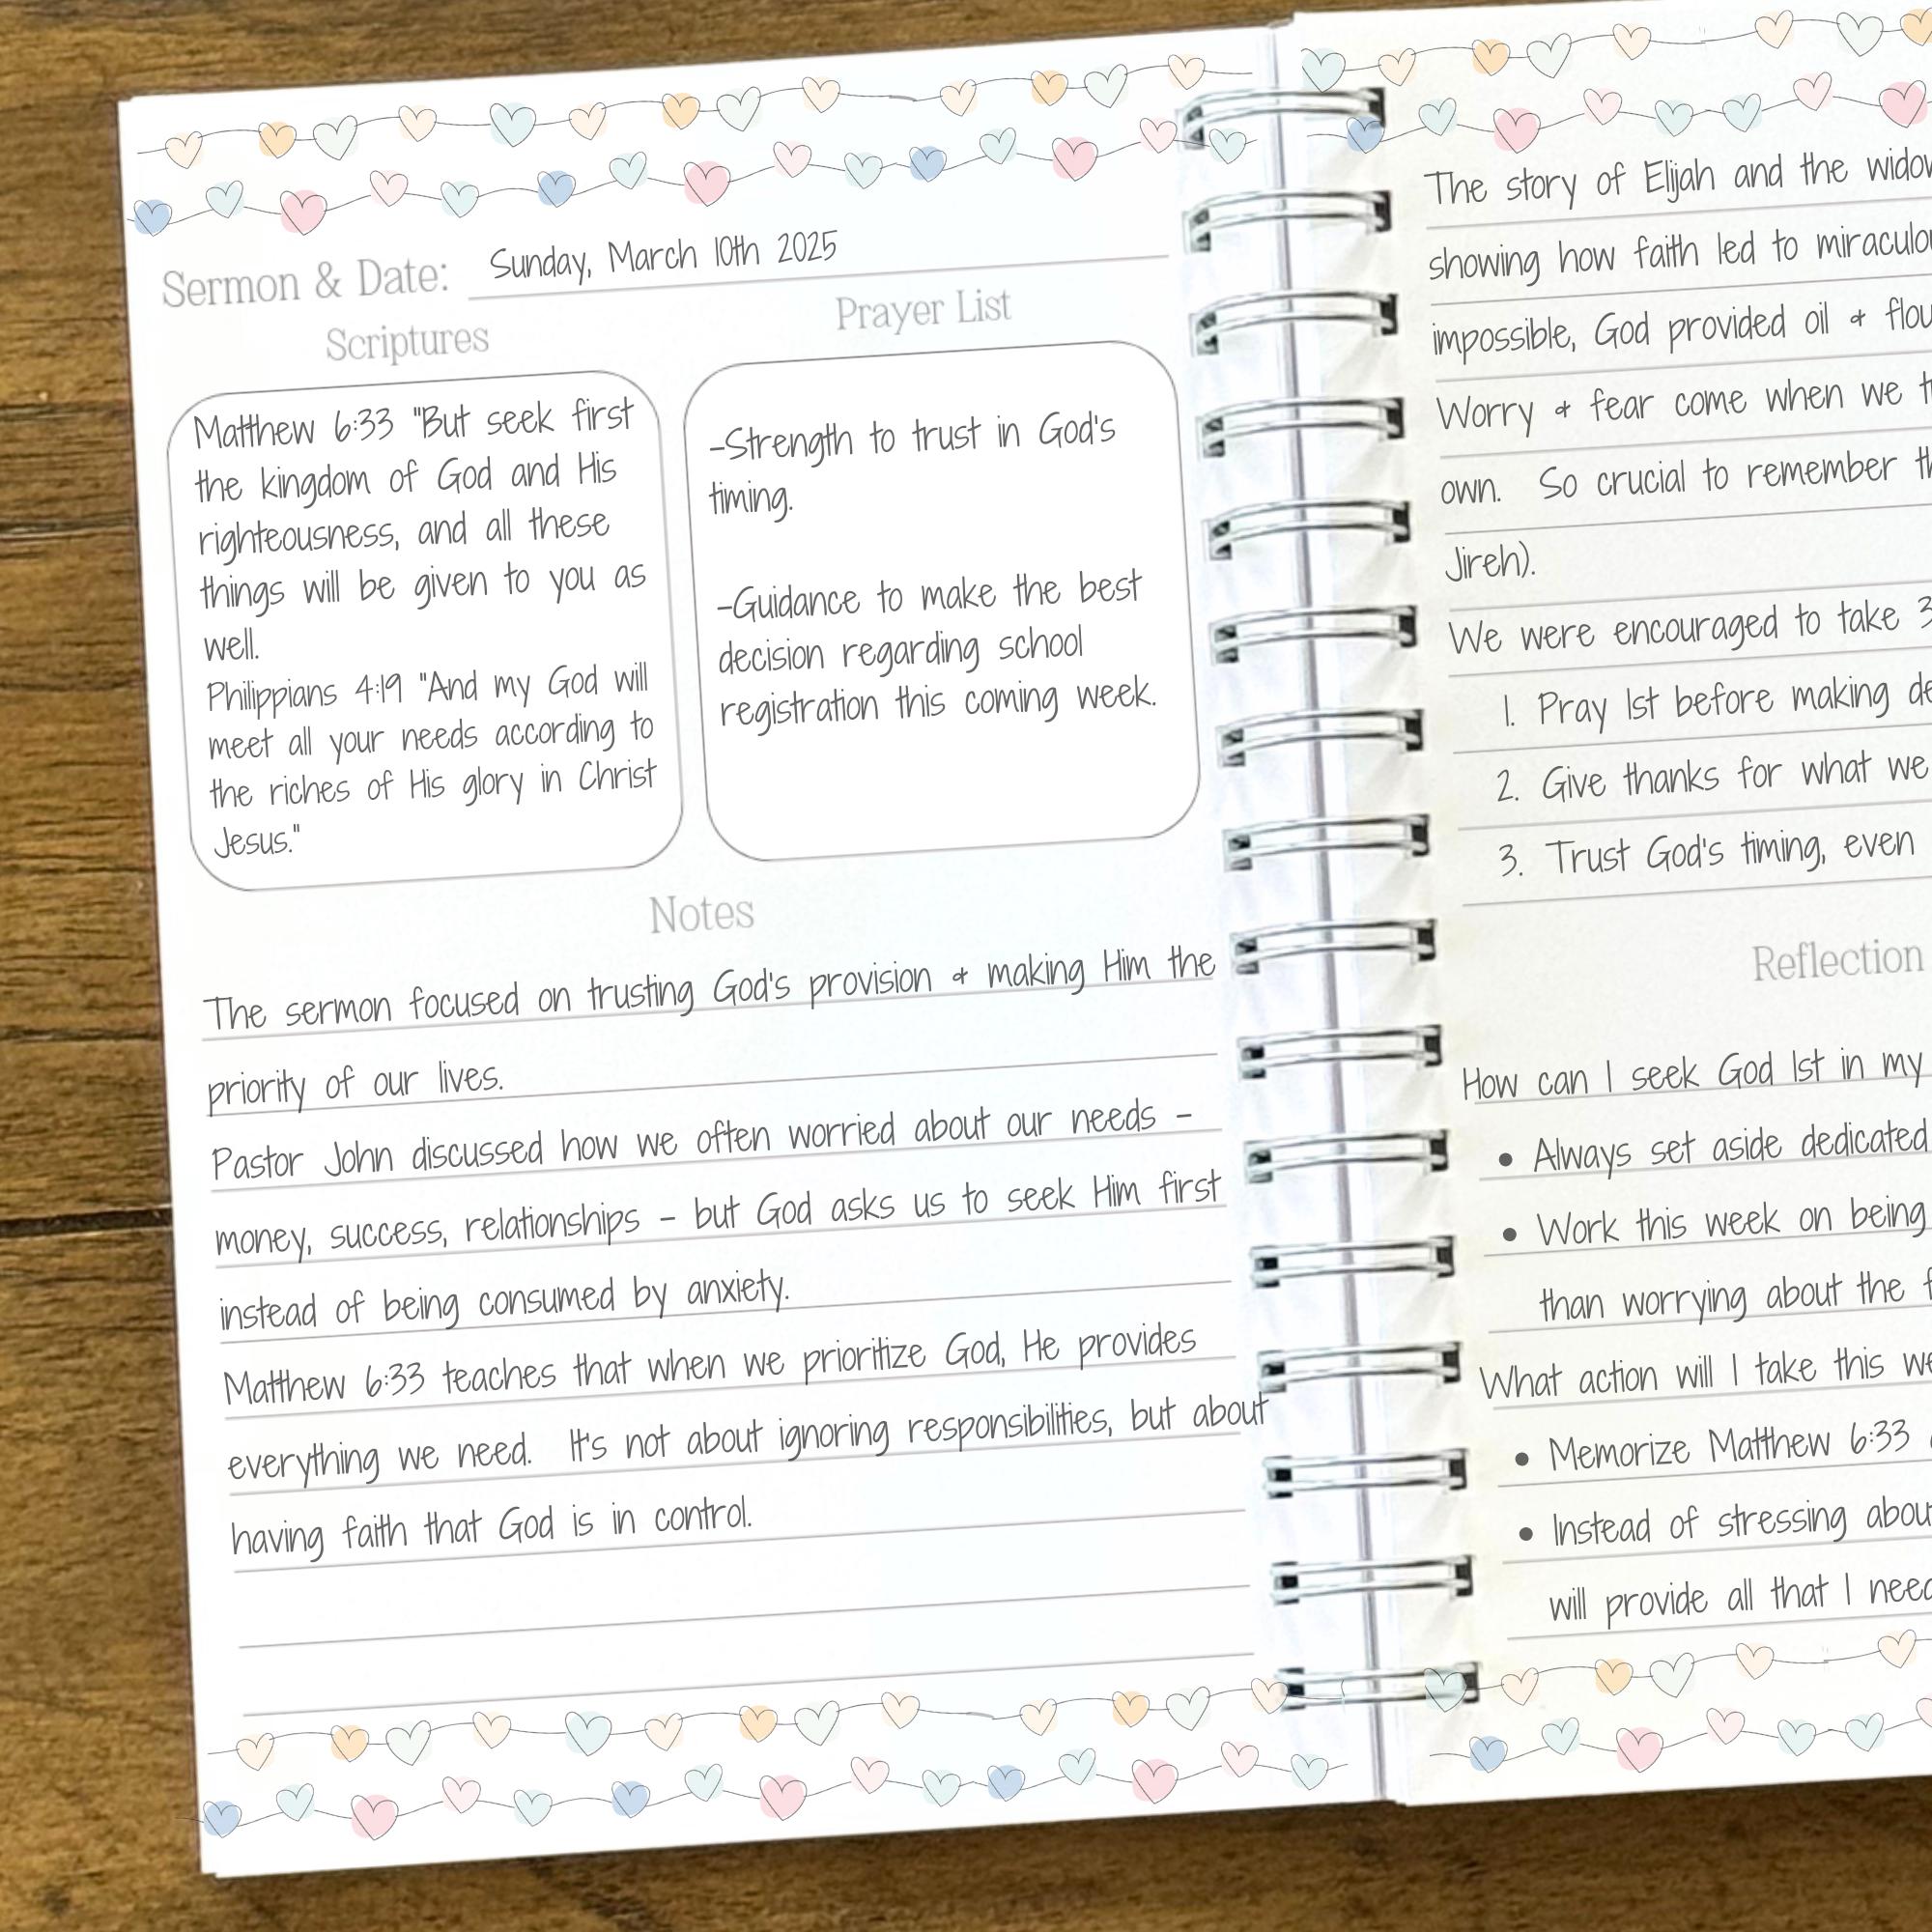 Sermon & Date: Sunday, March 10th 2025
Scriptures
Matthew 6:33 "But seek first
the kingdom of God and His
righteousness, and all these
things will be given to you as
well.
Philippians 4:19 "And my God will
meet all your needs according to
the riches of His glory in Christ
Jesus."
Prayer List
-Strength to trust in God's
timing.
-Guidance to make the best
decision regarding school
registration this coming week.
Notes
The sermon focused on trusting God's provision & making Him the
priority of our lives.
Pastor John discussed how we often worried about our needs -
money, success, relationships - but God asks us to seek Him first
instead of being consumed by anxiety.
Matthew 6:33 teaches that when we prioritize God, He provides
everything we need. It's not about ignoring responsibilities, but about
having faith that God is in control.
The story of Elijah and the
showing how faith led to
impossible, God provided oil &
Worry & fear come when we
own. So crucial to remember
Jireh).
We were encouraged to take 3
1. Pray 1st before making
2. Give thanks for what we
3. Trust God's timing, even
Reflection
How can I seek God 1st in my
• Always set aside dedicated
• Work this week on being
than worrying about the
What action will I take this
• Memorize Matthew 6:33
• Instead of stressing
will provide all that I